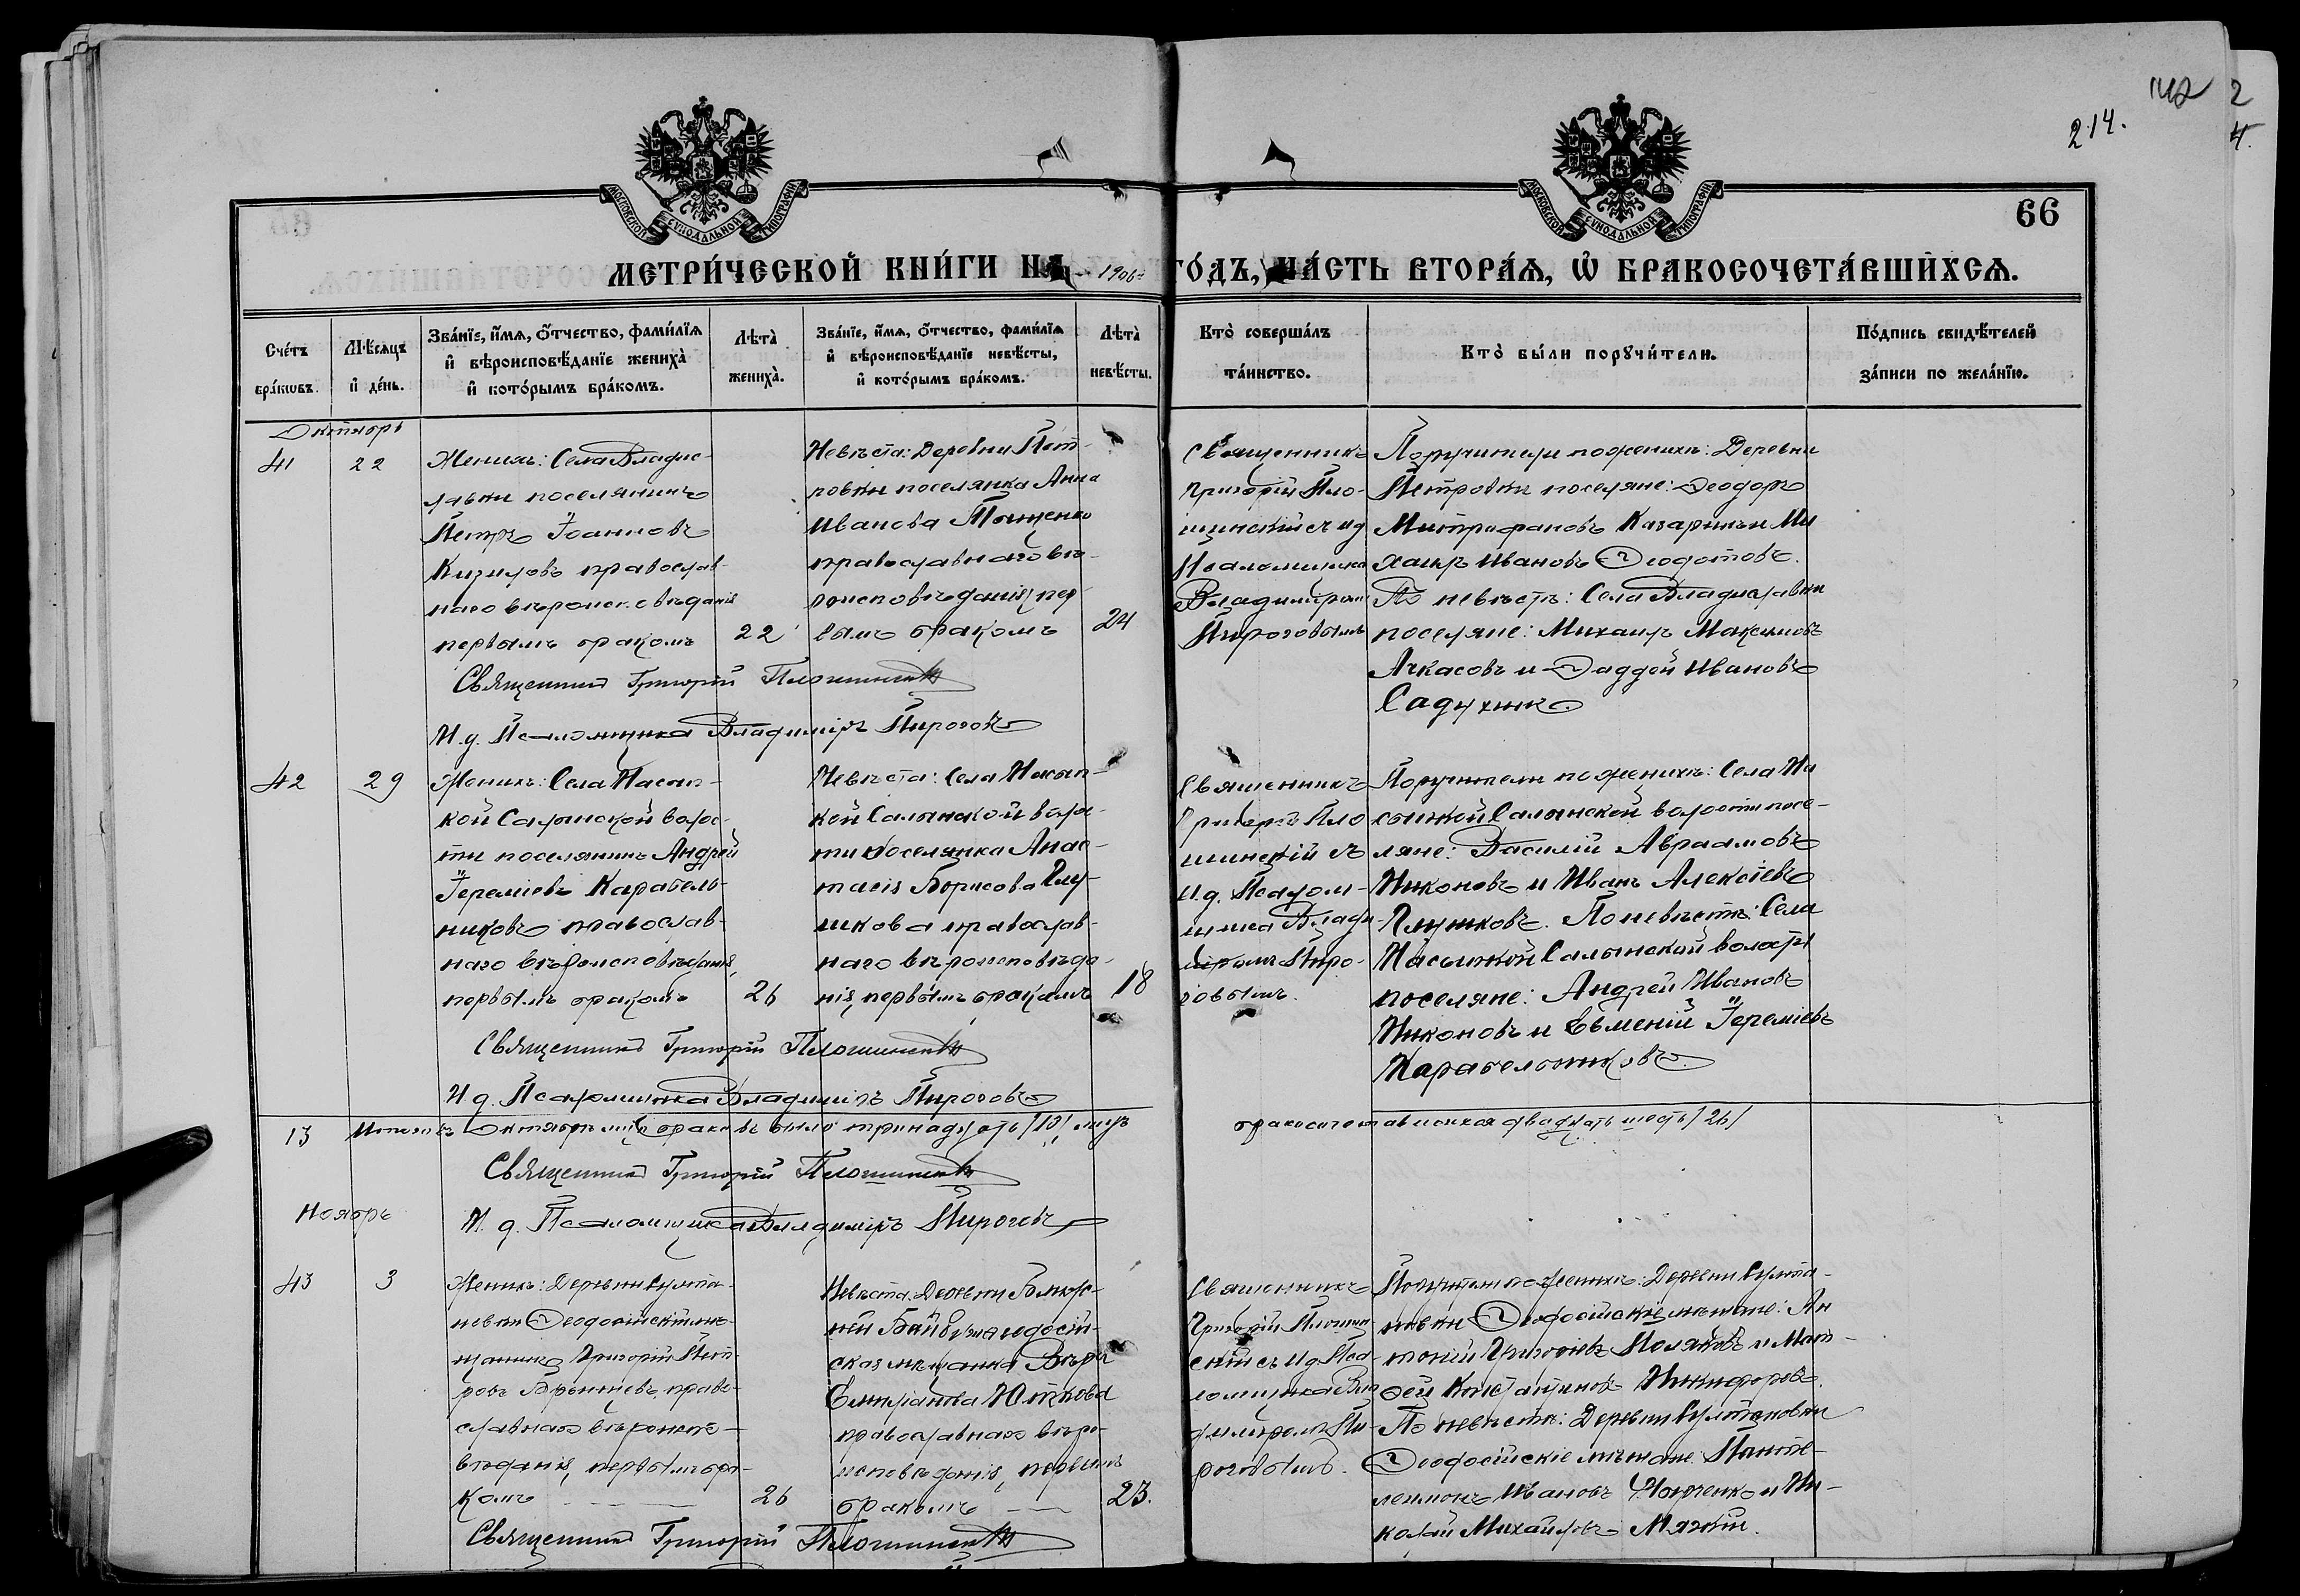 142
2
214.
4.
МОСКОВСКОЙ СѴНОДАЛЬНОЙ ТИПОГРАФІИ
МОСКОВСКОЙ СѴНОДАЛЬНОЙ ТИПОГРАФІИ
66
МЕТРИ́ЧЕСКОЙ КНИ́ГИ НА 1906 ГО́ДЪ, ЧА́СТЬ ВТОРА́Я, Ѡ БРАКОСОЧЕТА́ВШИХСЯ.
Сче́тъ бра́кѡвъ.
Мѣ́сяцъ и де́нь.
Зва́нїе, и́мя, о́тчество, фами́лїя и вѣроисповѣ́данїе жениха̀ и кото́рымъ бра́комъ.
Лѣта̀ жениха̀.
Зва́нїе, и́мя, о́тчество, фами́лїя и вѣроисповѣ́данїе невѣ́сты, и кото́рымъ бра́комъ.
Лѣта̀ невѣ́сты.
Кто̀ соверша́лъ та́инство.
Кто̀ бы́ли порꙋчи́тели.
По́дпись свидѣ́телей за́писи по жела́нїю.
Октябрь
41
22
Женихъ: Села Владис-
лавки поселянинъ
Петръ Іоанновъ
Кизиловъ православ-
наго вѣроисповѣданія
первымъ бракомъ
22
Невѣста: Деревни Пет-
ровки поселянка Анна
Иванова Тищенко
православнаго вѣ-
роисповѣданія, пер
вымъ бракомъ
24
Священникъ
Григорій Пло-
шинскій съ ид
Псаломщика
Владиміромъ
Пироговымъ
Поручители по женихѣ: Деревни
Петровки поселяне: Ѳеодоръ
Митрофановъ Казаринъ и Ми
хаилъ Ивановъ Ѳеодотовъ.
По невѣстѣ: Села Владиславки
поселяне: Михаилъ Максимовъ
Ачкасовъ и Ѳаддей Ивановъ
Садухинъ.
Священникъ Григорій Плошинскій
И.д. Псаломщика Владиміръ Пироговъ
42
29
Женихъ: Села Насып-
кой Салынской волос-
ти поселянинъ Андрей
Іереміевъ Карабель-
никовъ православ-
наго вѣроисповѣданія,
первымъ бракомъ
26
Невѣста: Села Насып-
кой Салынской волос-
ти поселянка Анас-
тасія Борисова Глу-
шкова православ-
наго вѣроисповѣда-
нія, первымъ бракомъ
18
Священникъ
Григорій Пло
шинскій съ
И.д. Псалом-
щика Влади
міромъ Пиро-
говымъ.
Поручители по женихѣ: Села На
сыпкой Салынской волости посе-
ляне: Василій Авраамовъ
Никоновъ и Иванъ Алексѣевъ
Глушковъ. По невѣстѣ: Села
Насыпкой Салынской волости
поселяне: Андрей Ивановъ
Никоновъ и Евменій Іереміевъ
Карабельниковъ.
Священникъ Григорій Плошинскій
И.д. Псаломщика Владиміръ Пироговъ
13
Итого въ Октябрѣ мцѣ браковъ было тринадцать /13/ лицъ
бракосочетавшихся двадцать шесть /26/
Священникъ Григорій Плошинскій
И.д. Псаломщика Владиміръ Пироговъ
Ноябрь
43
3
Женихъ: Деревни Султа-
новки Ѳеодосійскій мѣ-
щанинъ Григорій Пет-
ровъ православнаго вѣроиспо-
вѣданія, первымъ бра-
комъ
26
Невѣста: Деревни
Ѳеодосій-
ская мѣщанка Вѣра
Емиліанова Юткова
православнаго вѣро-
исповѣданія, первымъ
бракомъ
23.
Священникъ
Григорій Плошин-
скій съ Ид Пса-
ломщика Вла
диміромъ Пи-
роговымъ.
Поручители по женихѣ: Деревни Султа-
новки Ѳеодосійскіе мѣщане: Ан
тоній Григорьевъ Поляковъ и Мат-
ѳей Константиновъ Никифоровъ.
По невѣстѣ: Деревни Султановки
Ѳеодосійскіе мѣщане: Панте-
леимонъ Ивановъ и Ни-
колай Михайловъ Мягкій.
Священникъ Григорій Плошинскій